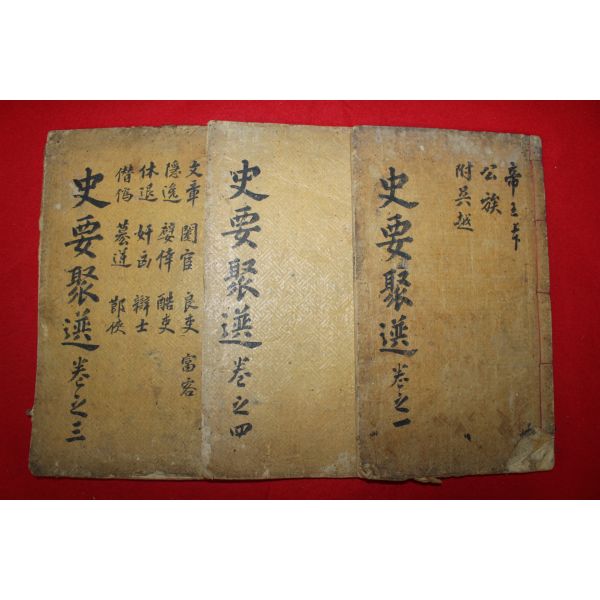 帝王本
公族
附吳越
史要聚選卷之一
史要聚選卷之四
文章 閹官 良吏 富客
隱逸 嬖倖 酷吏
休退 奸凶 辯士
僭僞 篡逆 郎俠
史要聚選卷之三